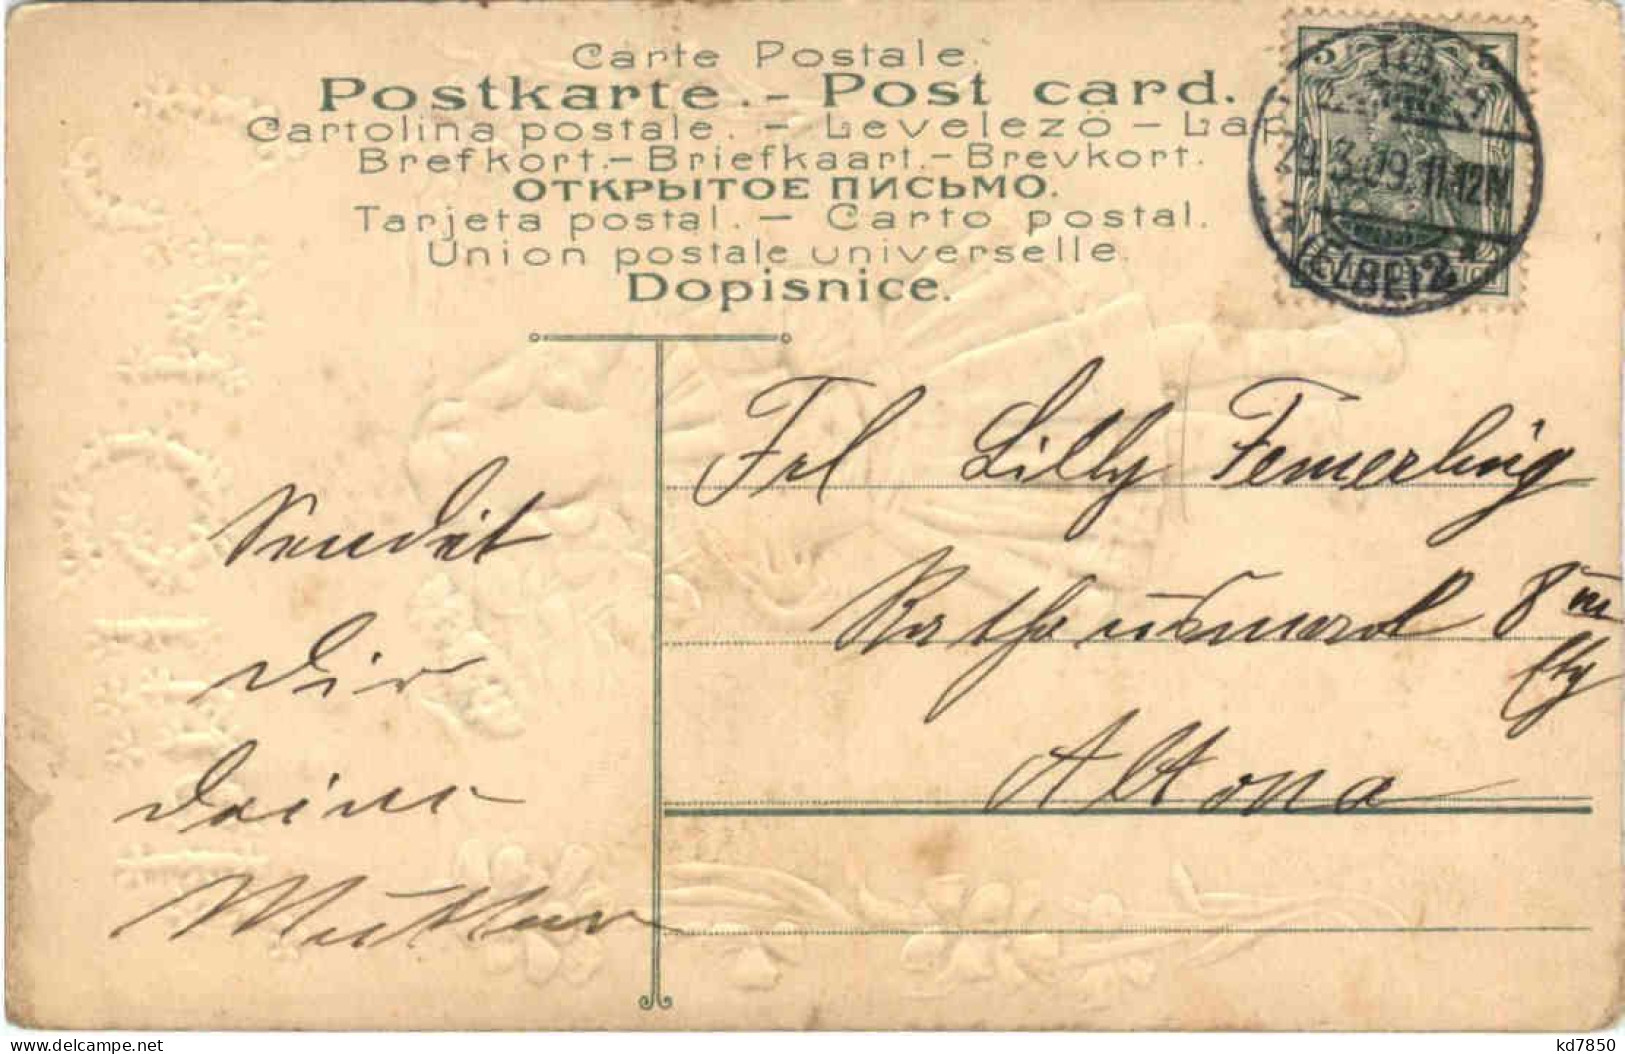 Carte Postale.
Postkarte. - Post card.
Cartolina postale. - Levelezö - Lap
Brefkort. - Briefkaart. - Brevkort.
ОТКРЫТОЕ ПИСЬМО.
Tarjeta postal. - Carto postal.
Union postale universelle.
Dopisnice.
5 5
29.3.09. 11-12N.
(ELBE) 2 *
Frl Lilly Femerling
Rathausmarkt 8 III
Etg
Altona
Sendet
Dir
Deine
Mutter
delcampe.net
kd7850